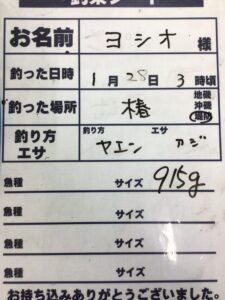 釣果シート
お名前 ヨシオ 様
釣った日時 1月28日 3時頃
釣った場所 椿 地磯 沖磯 堤防
釣り方 エサ
釣り方 エサ
ヤエン アジ
魚種 サイズ 915g
魚種 サイズ
魚種 サイズ
魚種 サイズ
お持ち込みありがとうございました。